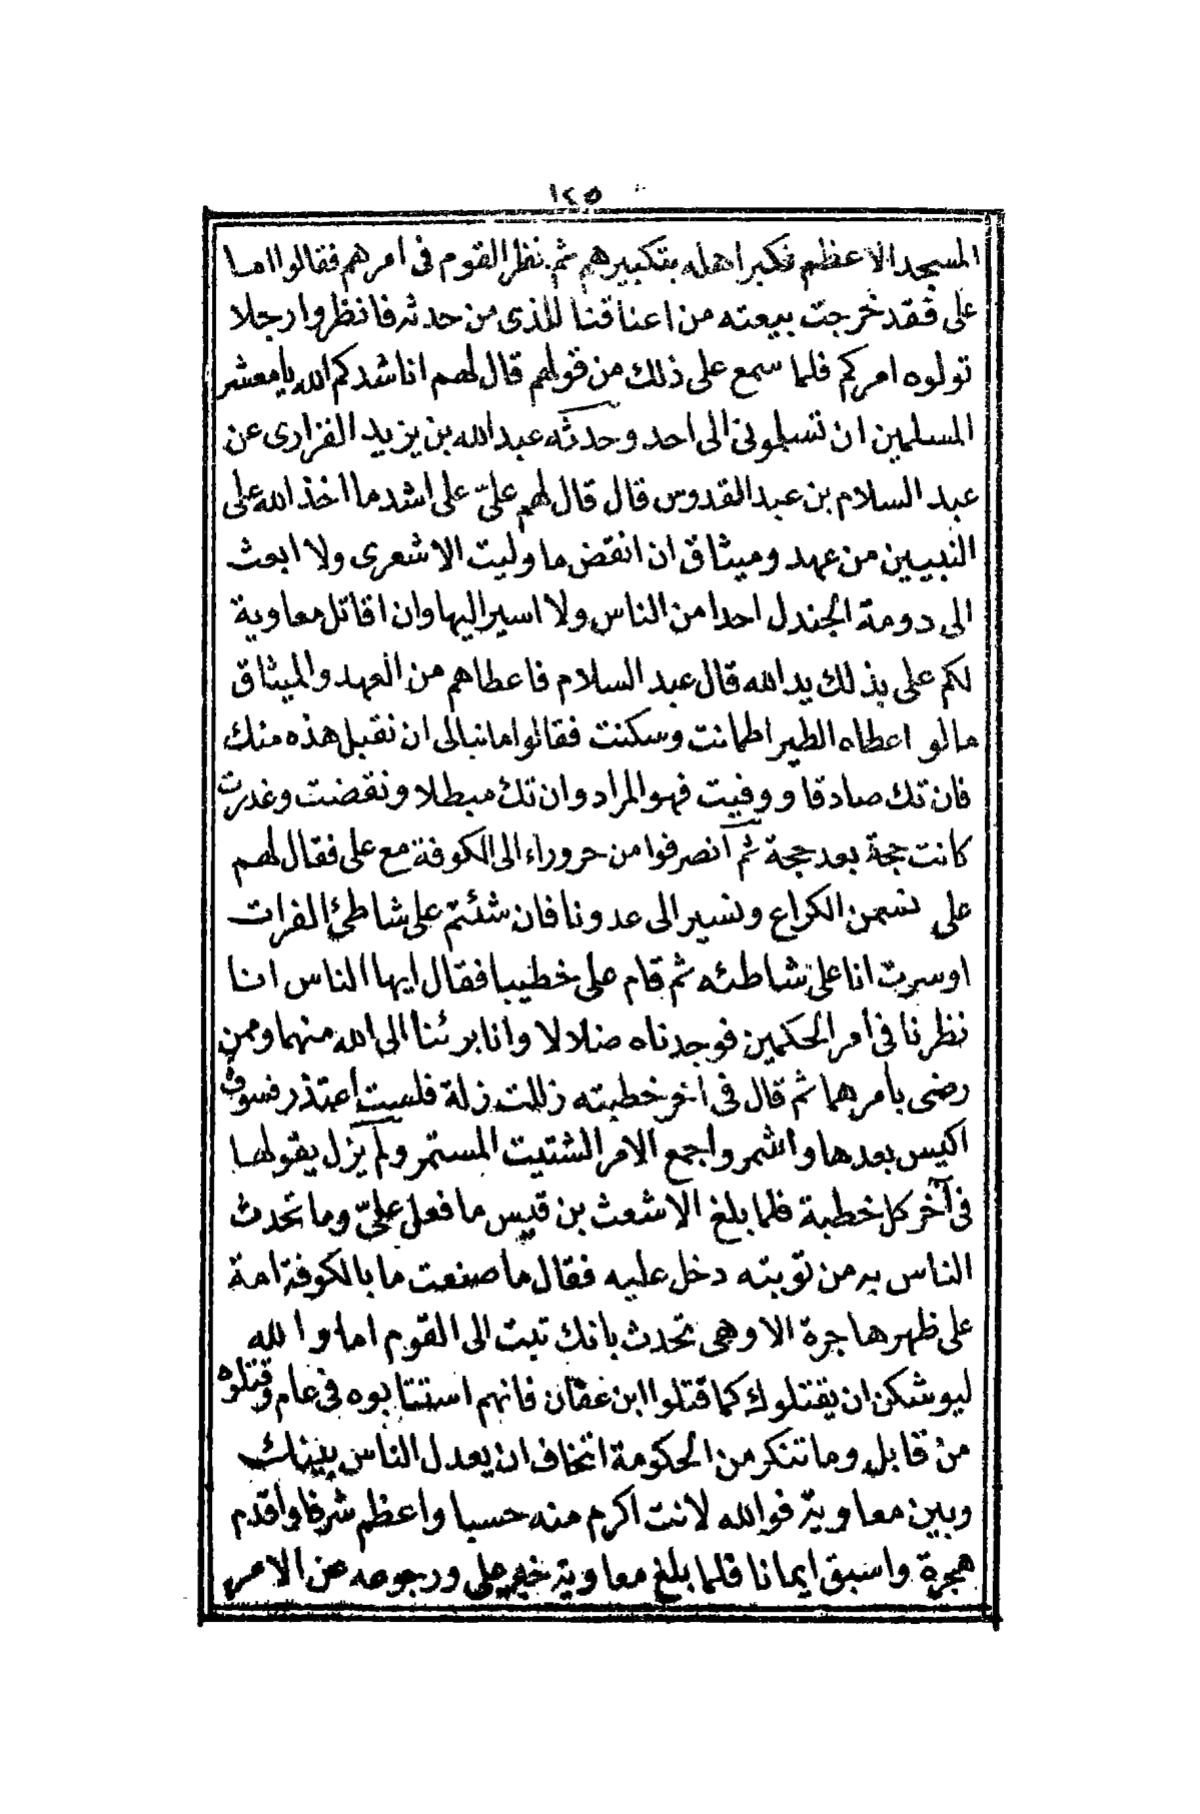 ١٢٥
المسجد الاعظم فكبر اهله بتكبيرهم ثم نظر القوم فى امرهم فقالوا اما
على فقد خرجت بيعته من اعناقنا للذى من حدثه فانظروا رجلا
تولوه امركم فلما سمع على ذلك من قولهم قال لهم اناشدكم الله يا معشر
المسلمين ان تسلمونى الى احد وحدثه عبد الله بن يزيد الفزارى عن
عبد السلام بن عبد القدوس قال قال لهم علىّ على اشد ما اخذ الله على
النبيين من عهد وميثاق ان انقض ما وليت الاشعرى ولا ابعث
الى دومة الجندل احدا من الناس ولا اسير اليها وان اقاتل معاوية
لكم على بذلك يد الله قال عبد السلام فاعطاهم من العهد والميثاق
ما لو اعطاه الطير اطمانت وسكنت فقالوا ما نبالى ان نقبل هذه منك
فان تك صادقا ووفيت فهو المراد وان تك مبطلا ونقضت وغدرت
كانت حجة بعد حجة ثم انصرفوا من حروراء الى الكوفة مع على فقال لهم
على نسمن الكراع ونسير الى عدونا فان شئتم على شاطئ الفرات
او سرت انا على شاطئه ثم قام على خطيبا فقال ايها الناس انا
نظرنا فى امر الحكمين فوجدناه ضلالا وانا برئنا الى الله منهما وممن
رضى بأمرهما ثم قال فى اخر خطبته زللت زلة فلست اعتذر فسوف
اكيس بعدها واشمر واجمع الامر الشتيت المستمر ولم يزل يقولها
فى آخر كل خطبة فلما بلغ الاشعث بن قيس ما فعل علىّ وما تحدث
الناس به من توبته دخل عليه فقال ما صنعت ما بالكوفة امة
على ظهرها جرة الا وهى تحدث بانك تبت الى القوم اما والله
ليوشكن ان يقتلوك كما قتلوا ابن عفان فانهم استتابوه فى عام وقتلوه
من قابل وما تنكر من الحكومة اتخاف ان يعدل الناس بينك
وبين معاوية فوالله لانت اكرم منه حسبا واعظم شرفا واقدم
هجرة واسبق ايمانا فلما بلغ معاوية خبر على ورجوعه عن الامر